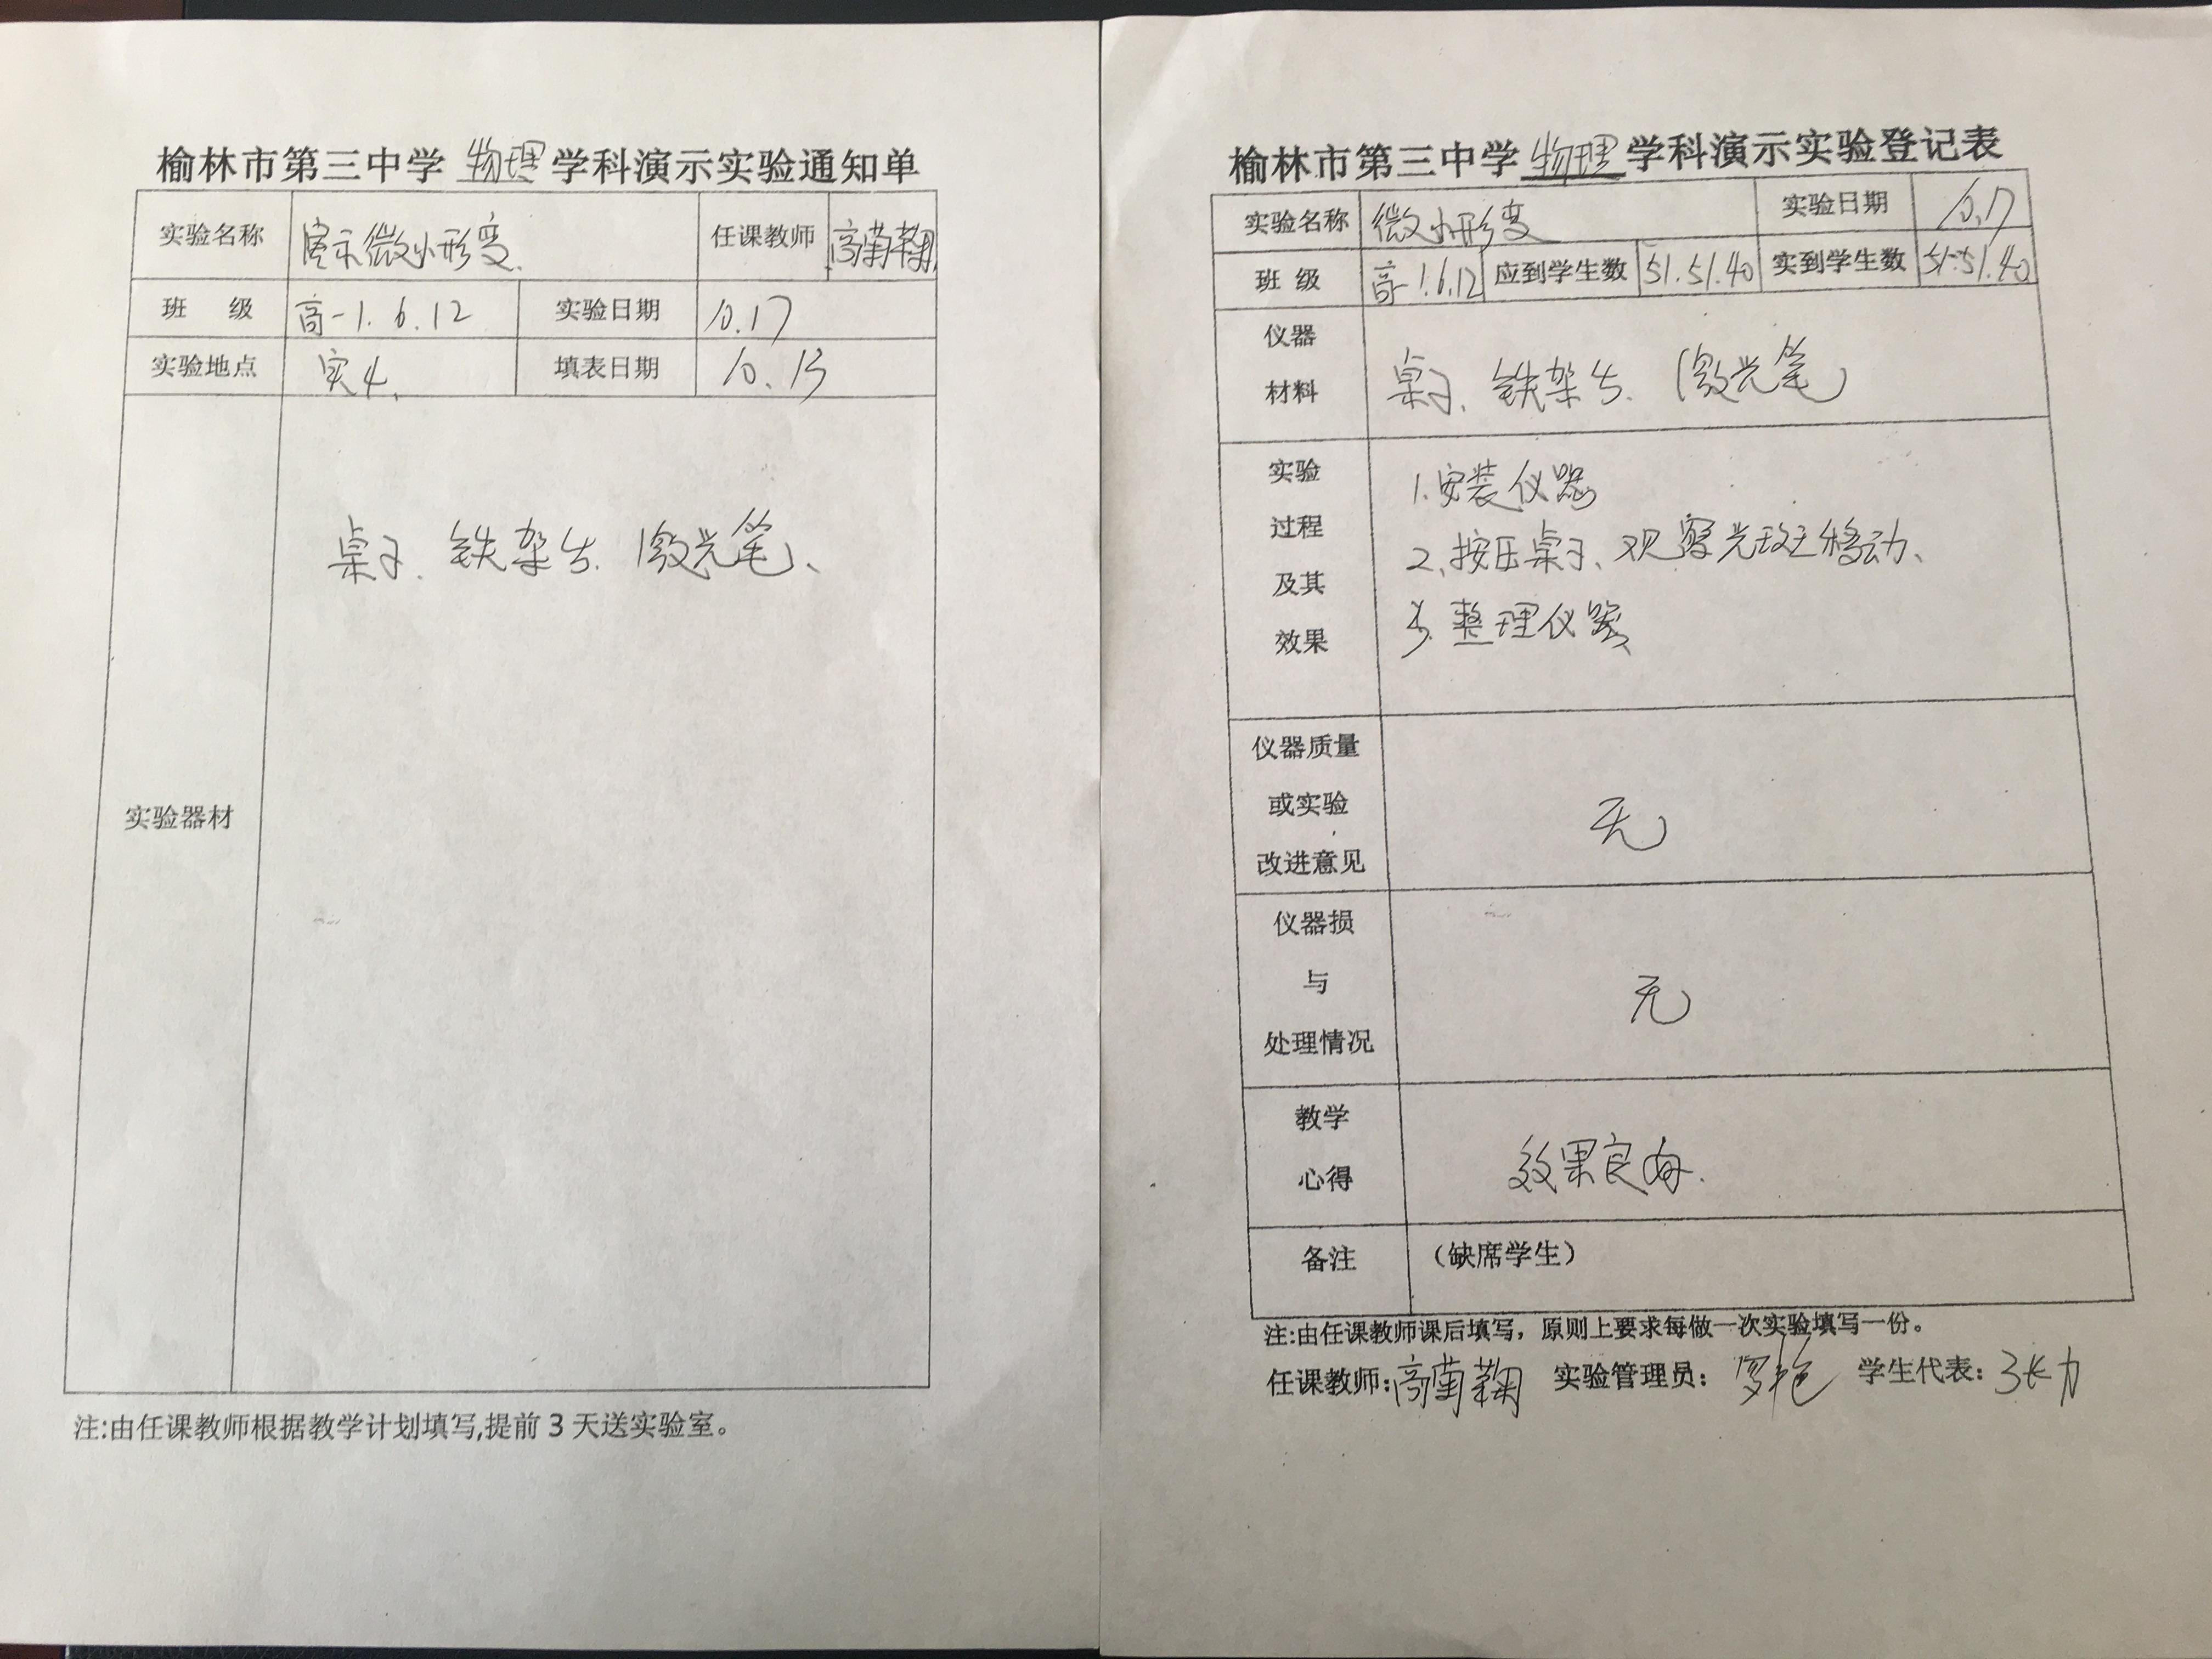 榆林市第三中学 物理 学科演示实验通知单
实验名称 演示微小形变、 任课教师 高菊鞠
班 级 高一1.6.12 实验日期 10.17
实验地点 实4、 填表日期 10.13
实验器材 桌子、铁架台、激光笔、
注:由任课教师根据教学计划填写,提前3天送实验室。
榆林市第三中学 物理 学科演示实验登记表
实验名称 微小形变 实验日期 10.17
班 级 高一1.6.12 应到学生数 51.51.40 实到学生数 51.51.40
仪器
材料
桌子、铁架台、激光笔
实验
过程
及其
效果
1.安装仪器
2、按压桌子、观察光斑移动、
3.整理仪器、
仪器质量
或实验
改进意见
无
仪器损
与
处理情况
无
教学
心得
效果良好.
备注 （缺席学生）
注:由任课教师课后填写，原则上要求每做一次实验填写一份。
任课教师: 高菊鞠 实验管理员: 罗艳 学生代表: